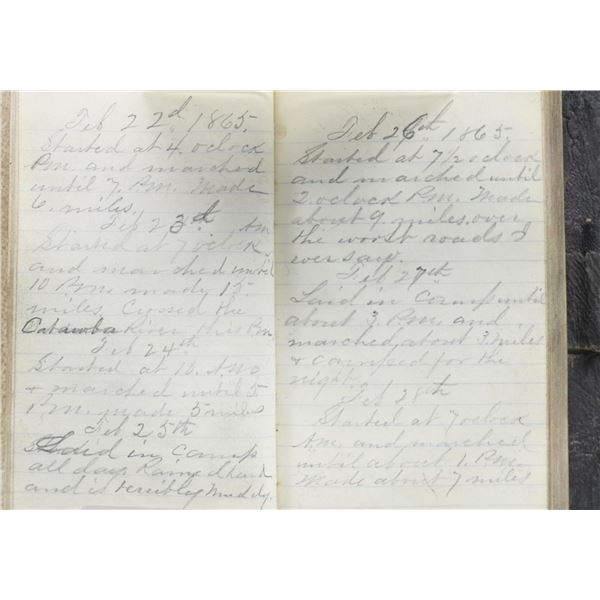 Feb 22d 1865.
Started at 4. oclock
P.M. and marched
until 7. P.M. Made
6. miles.
Feb 23th. A.M
Started at 7 oclock
and marched until
10 P.M. made 15
miles Crossed the
Catawba River this P.M.
Feb 24th
Started at 10. A.M.
& marched until 5
P.M. made 5 miles
Feb 25th
Laid in Camp
all day. Rained hard
and is terribly Muddy.
Feb 26th 1865.
Started at 7 1/2 oclock
and marched until
2. oclock P.M. Made
about 9. miles, over
the worst roads I
ever say.
Feb 27th
Laid in Camp until
about 3. P.M. and
marched about 3 miles
& camped for the
night.
Feb 28th
Started at 7 oclock
A.M. and marched
until about 1. P.M.
Made about 7 miles